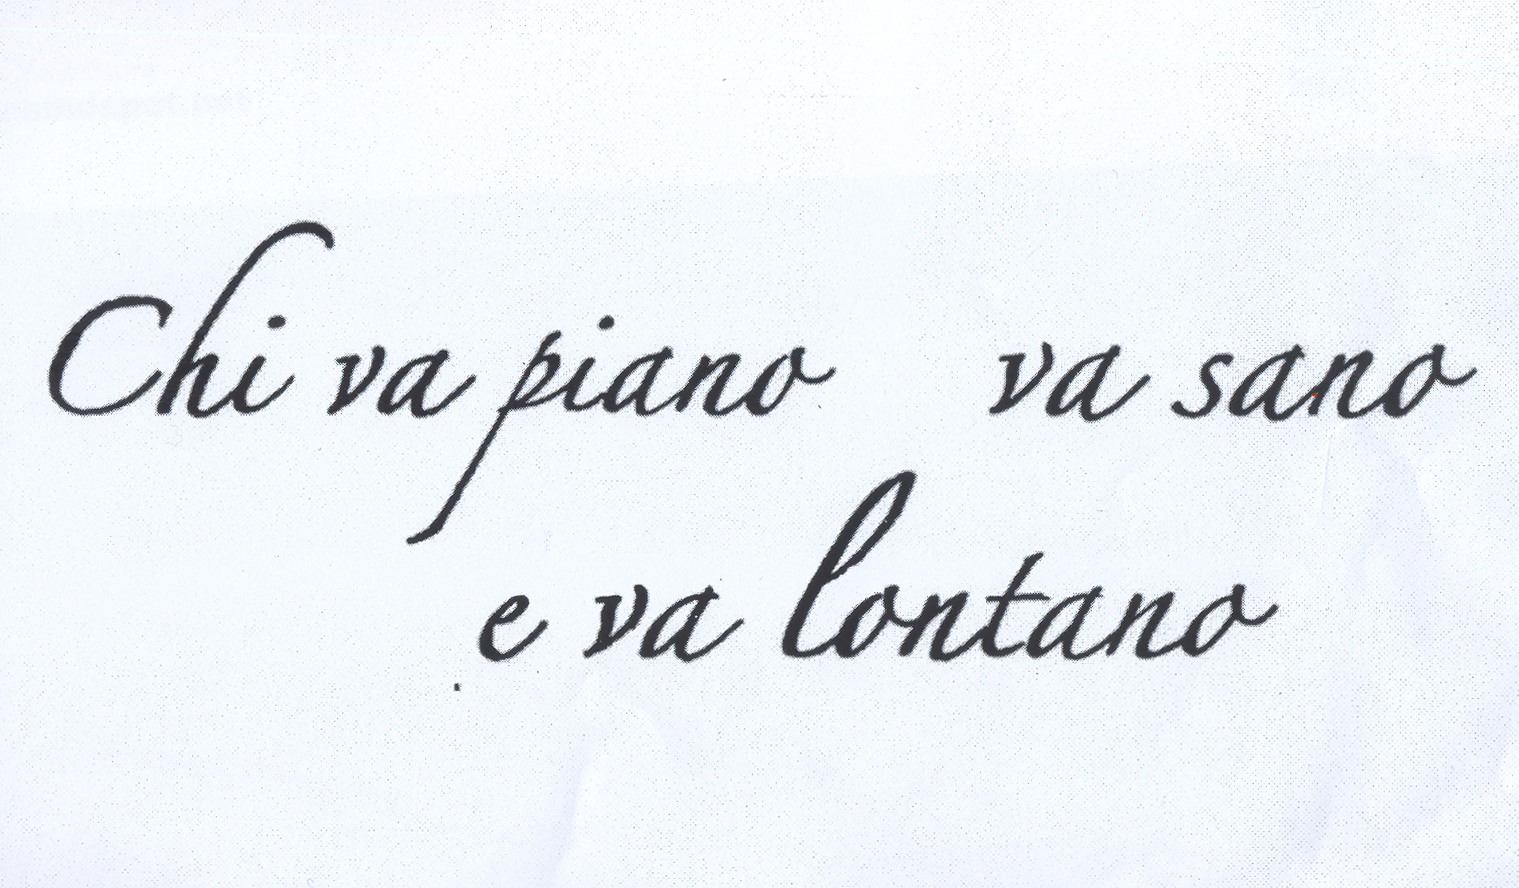 Chi va piano va sano
e va lontano